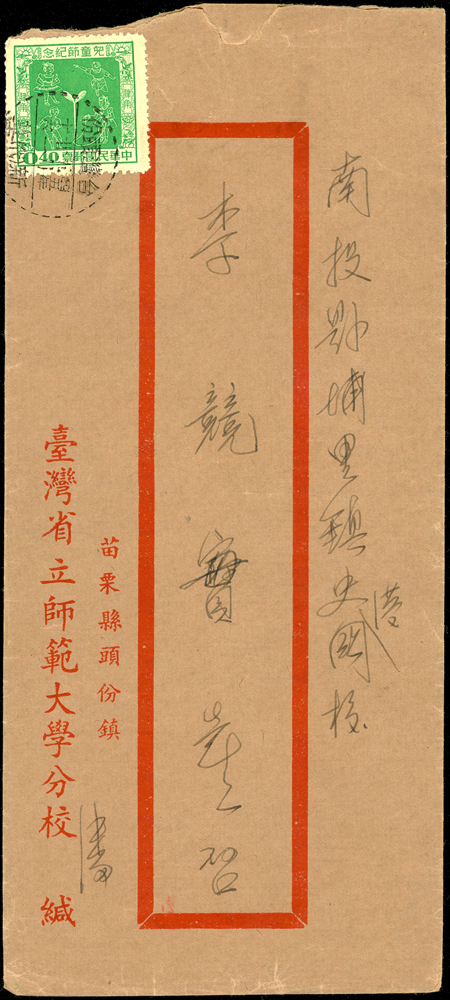 兒童節紀念
0.40
南投縣埔里鎮史港國校
李競實先生啓
苗栗縣頭份鎮
臺灣省立師範大學分校 緘
潘